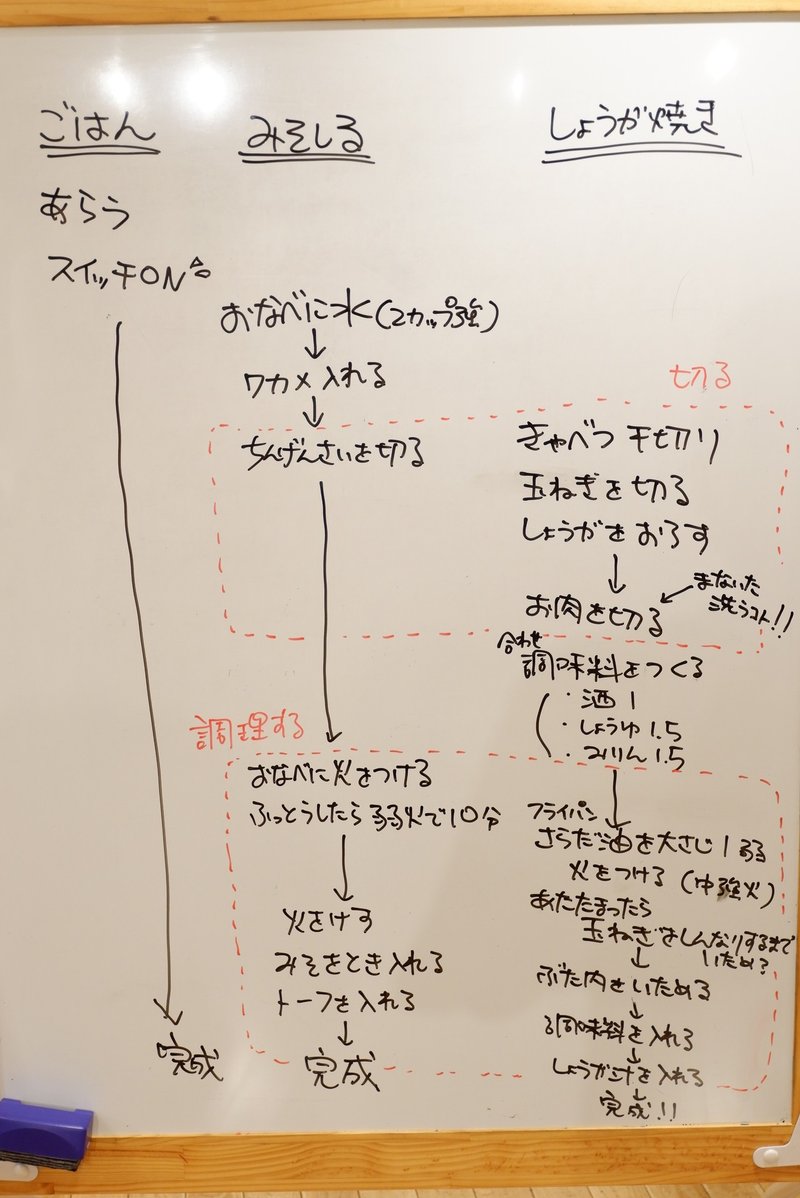 ごはん
あらう
スイッチON
完成
みそしる
おなべに水(2カップ強)
ワカメ入れる
ちんげんさいを切る
調理する
おなべに火をつける
ふっとうしたら弱火で10分
火をけす
みそをとき入れる
トーフを入れる
完成
しょうが焼き
切る
きゃべつ千切り
玉ねぎを切る
しょうがをおろす
お肉を切る
まないた
洗うコト!!
合わせ
調味料をつくる
・酒1
・しょうゆ1.5
・みりん1.5
フライパン
さらだ油を大さじ1弱
火をつける(中強火)
あたたまったら
玉ねぎをしんなりするまで
いため?
ぶた肉をいためる
調味料を入れる
しょうが汁を入れる
完成!!